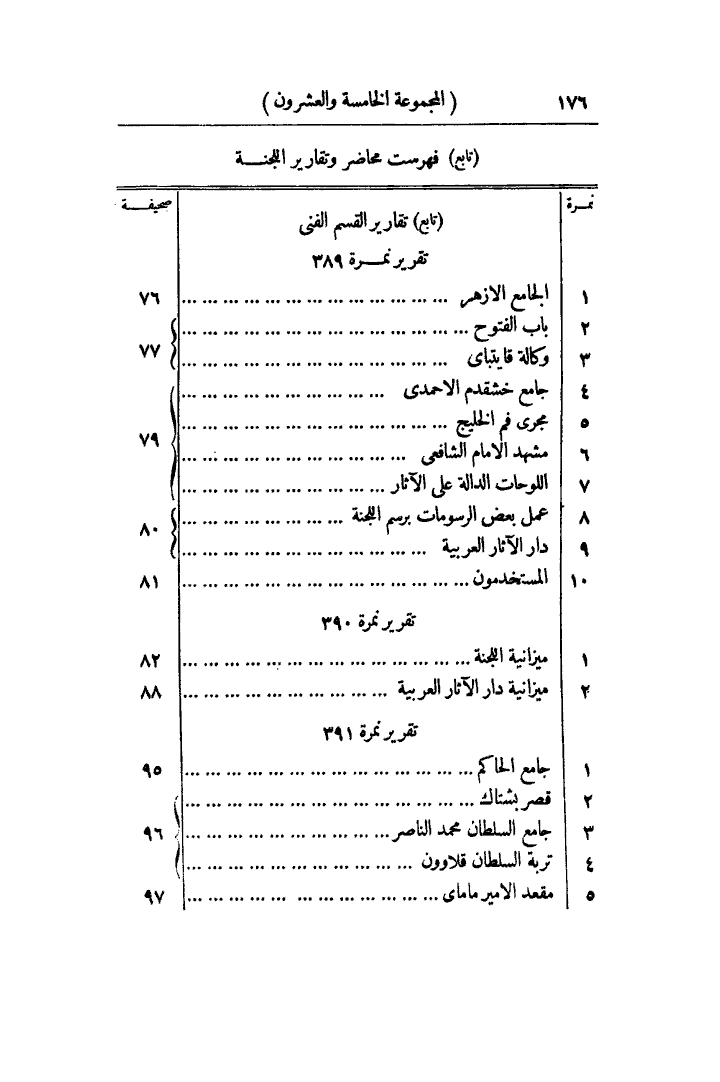 ١٧٦ ( المجموعة الخامسة والعشرون )
(تابع) فهرست محاضر وتقارير اللجنـــة
نمـرة صحيفـــة
(تابع) تقارير القسم الفنى
تقرير نمـــرة ٣٨٩
١ الجامع الازهر ... ... ... ... ... ... ... ... ... ... ... ... ... ٧٦
٢ باب الفتوح ... ... ... ... ... ... ... ... ... ... ... ... ... ...
٣ وكالة قايتباى ... ... ... ... ... ... ... ... ... ... ... ... ... ٧٧
٤ جامع خشقدم الاحمدى ... ... ... ... ... ... ... ... ... ...
٥ مجرى فم الخليج ... ... ... ... ... ... ... ... ... ... ... ... ...
٦ مشهد الامام الشافعى ... ... ... ... ... ... ... ... ... ... ... ٧٩
٧ اللوحات الدالة على الآثار ... ... ... ... ... ... ... ... ... ...
٨ عمل بعض الرسومات برسم اللجنة ... ... ... ... ... ... ... ...
٩ دار الآثار العربية ... ... ... ... ... ... ... ... ... ... ... ... ٨٠
١٠ المستخدمون ... ... ... ... ... ... ... ... ... ... ... ... ... ... ٨١
تقرير نمرة ٣٩٠
١ ميزانية اللجنة ... ... ... ... ... ... ... ... ... ... ... ... ... ... ٨٢
٢ ميزانية دار الآثار العربية ... ... ... ... ... ... ... ... ... ... ٨٨
تقرير نمرة ٣٩١
١ جامع الحاكم ... ... ... ... ... ... ... ... ... ... ... ... ... ... ٩٥
٢ قصر بشتاك ... ... ... ... ... ... ... ... ... ... ... ... ... ...
٣ جامع السلطان محمد الناصر ... ... ... ... ... ... ... ... ... ... ٩٦
٤ تربة السلطان قلاوون ... ... ... ... ... ... ... ... ... ... ...
٥ مقعد الامير ماماى ... ... ... ... ... ... ... ... ... ... ... ... ٩٧